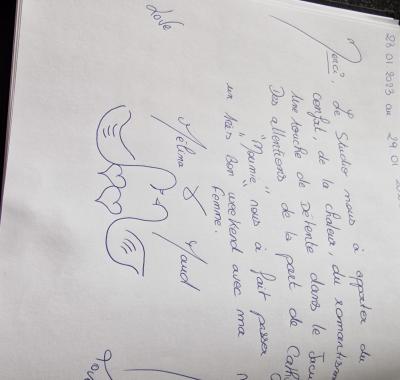 28 01 2023 au 29 01
Merci, Le Studio nous à apporter du
confot, de la chaleur, du romantism
une touche de Détente dans le Jacu
Des attentions de la part de Cath
"Moume" nous à fait passer
un très Bon weekend avec ma
femme.
Mélina & Maud
Love